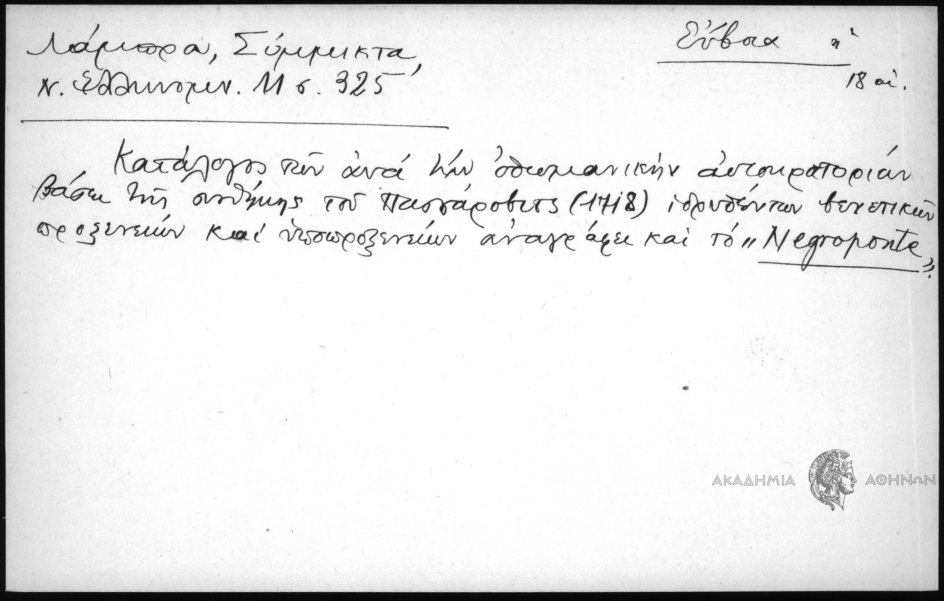 Λάμπρου, Σύμμικτα,
Ν. Ἑλληνομν. 11 σ. 325
Εὔβοια ἡ
18 αἰ.
Κατάλογος τῶν ἀνὰ τὴν ὀθωμανικὴν αὐτοκρατορίαν
βάσει τῆς συνθήκης τοῦ Πασσάροβιτς (1718) ἱδρυθέντων βενετικῶν
προξενείων καὶ ὑποπροξενείων ἀναγράφει καὶ τὸ „Negroponte„.
ΑΚΑΔΗΜΙΑ ΑΘΗΝΩΝ